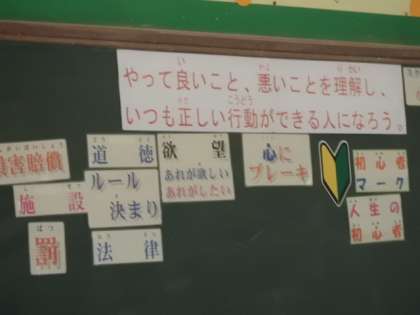 やって良いこと、悪いことを理解し、
いつも正しい行動ができる人になろう。
害賠償
施設
罰
道徳
ルール
決まり
法律
欲望
あれが欲しい
あれがしたい
心に
ブレーキ
初心者
マーク
人生の
初心者